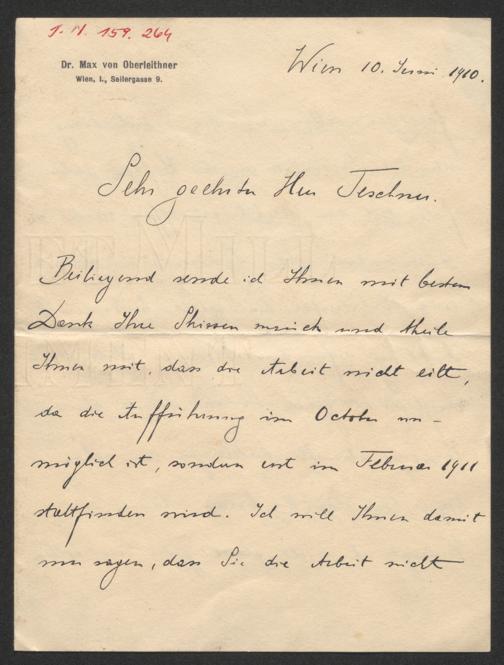 I. N. 159.264
Dr. Max von Oberleithner
Wien, I., Seilergasse 9.
Wien 10. Juni 1910.
Sehr geehrter Herr Teschner.
Beiliegend sende ich Ihnen mit bestem
Dank Ihre Skizzen zurück und theile
Ihnen mit, dass die Arbeit nicht eilt,
da die Aufführung im October un-
möglich ist, sondern erst im Februar 1911
stattfinden wird. Ich will Ihnen damit
nur sagen, dass Sie die Arbeit nicht